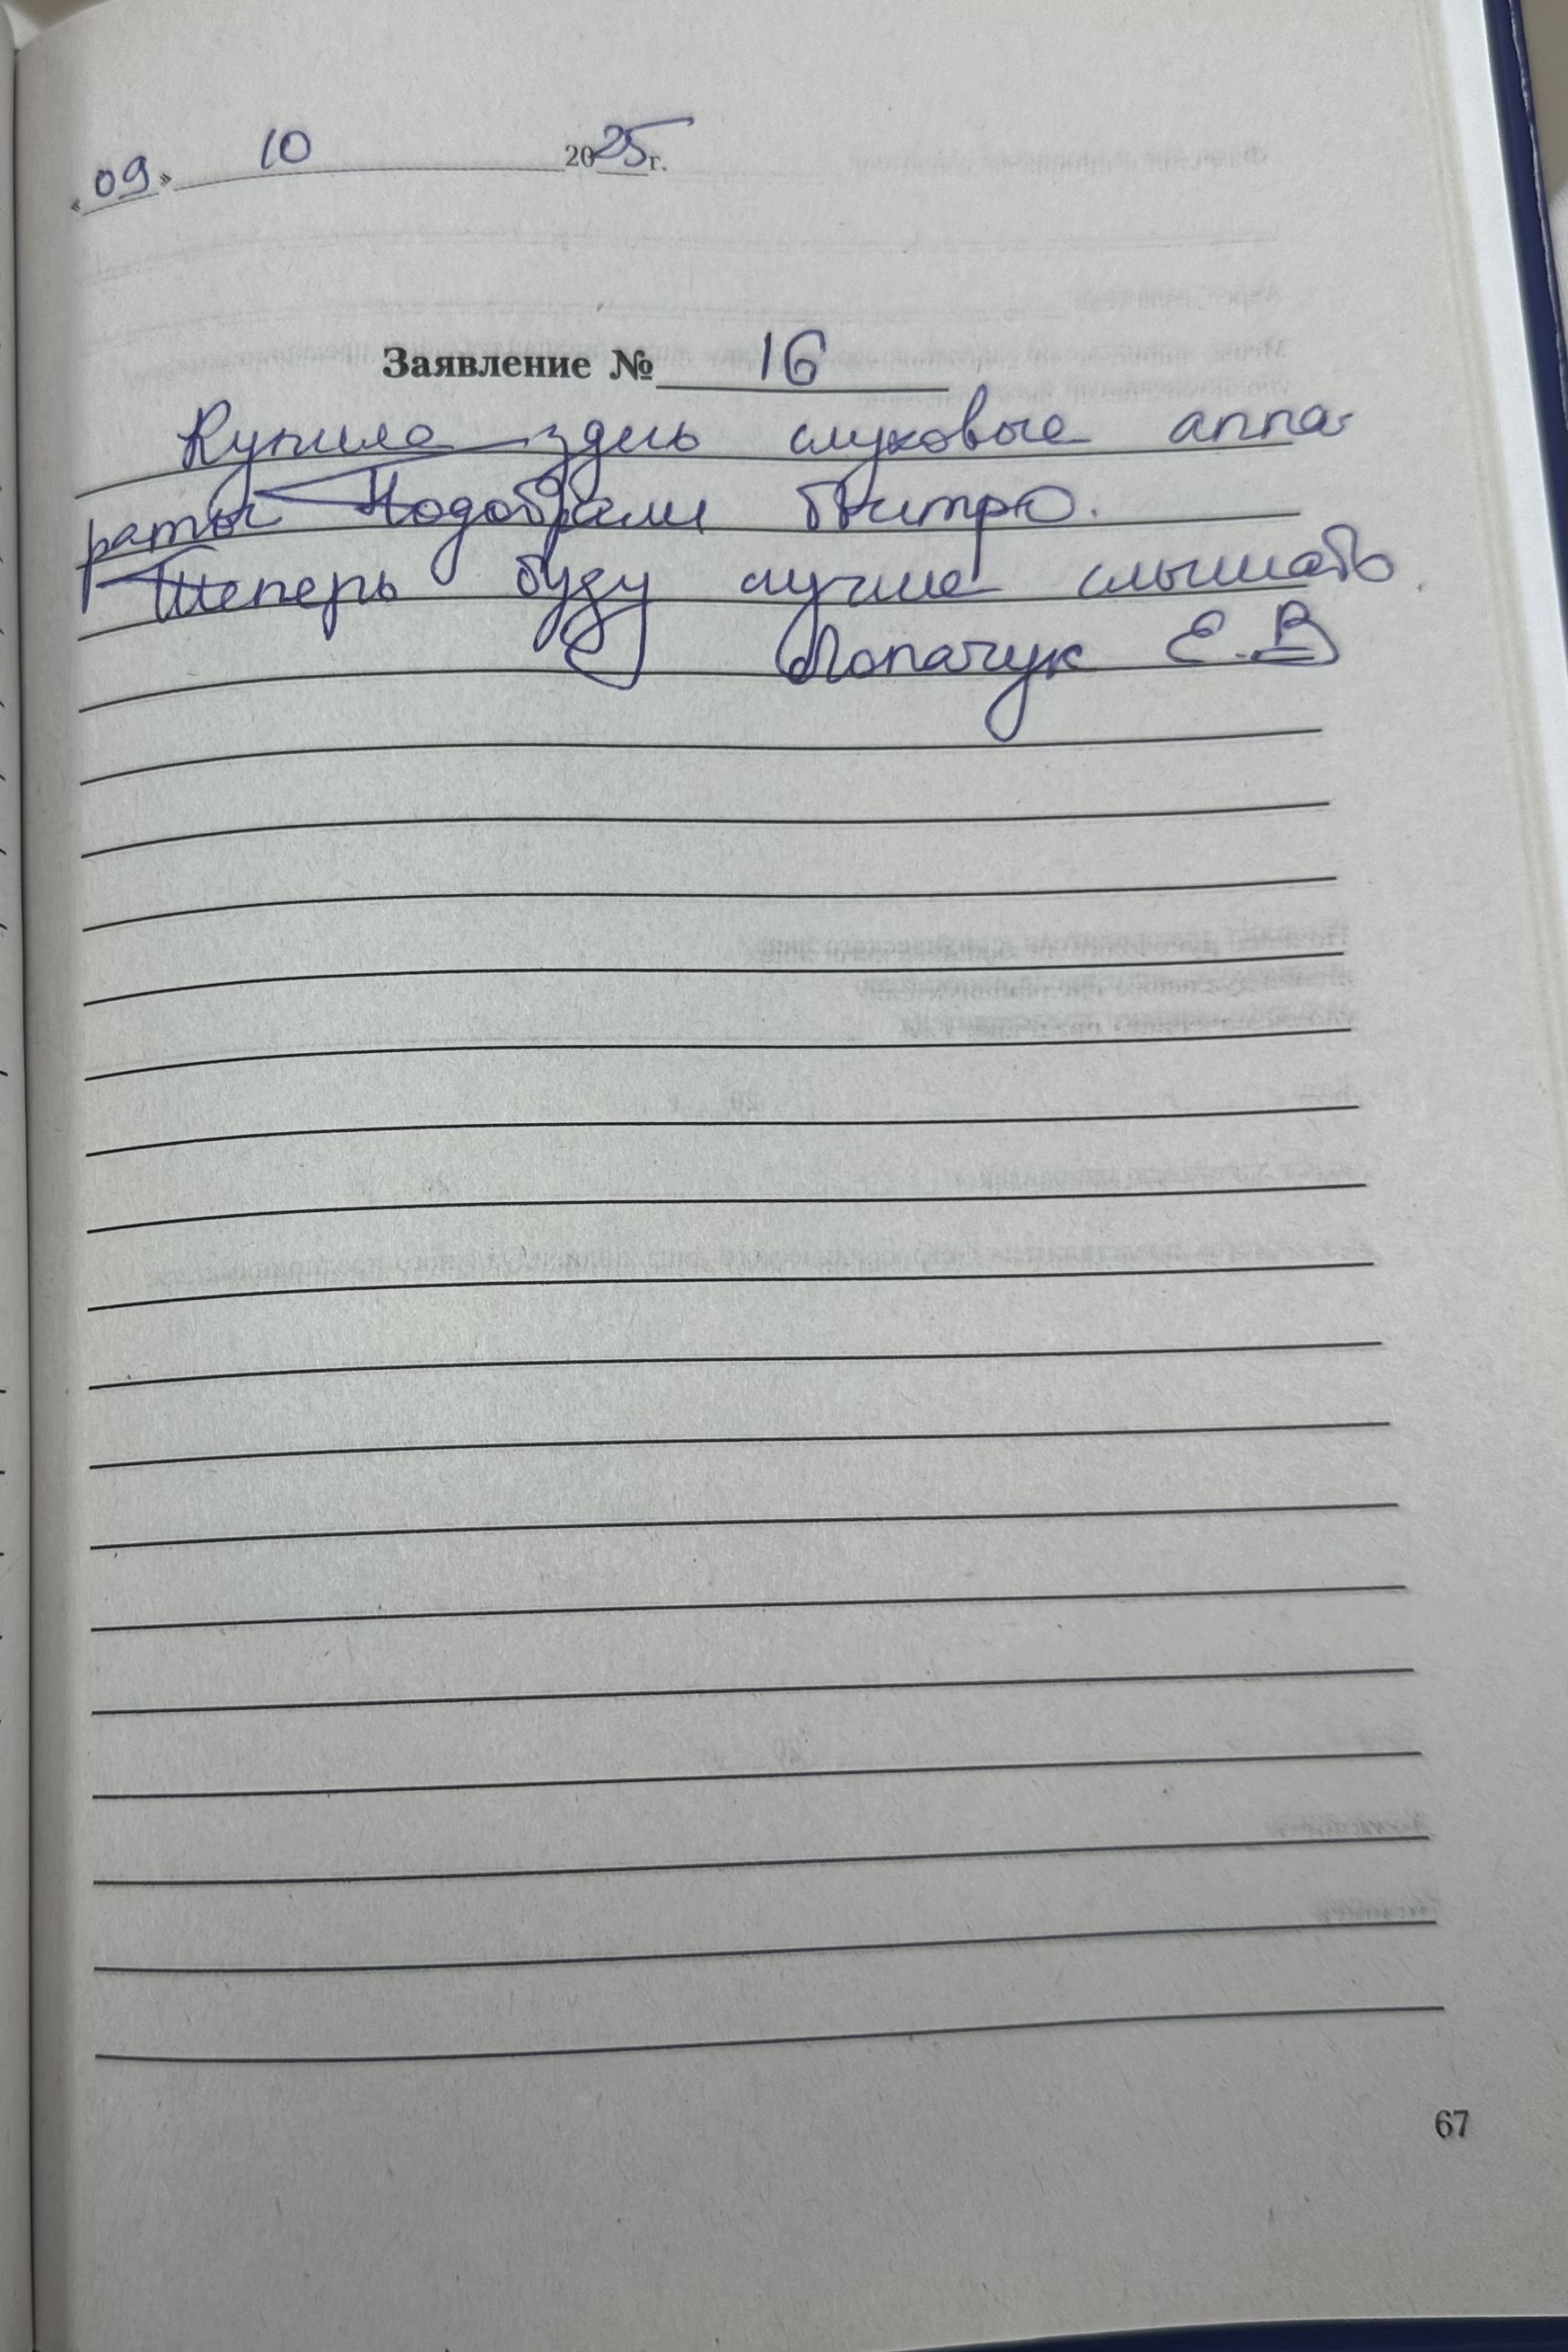 «09» 10 2025г.
Заявление № 16
Купила здесь слуховые аппа-
раты Подобрали быстро.
Теперь буду лучше слышать.
Лопачук Е.В
67